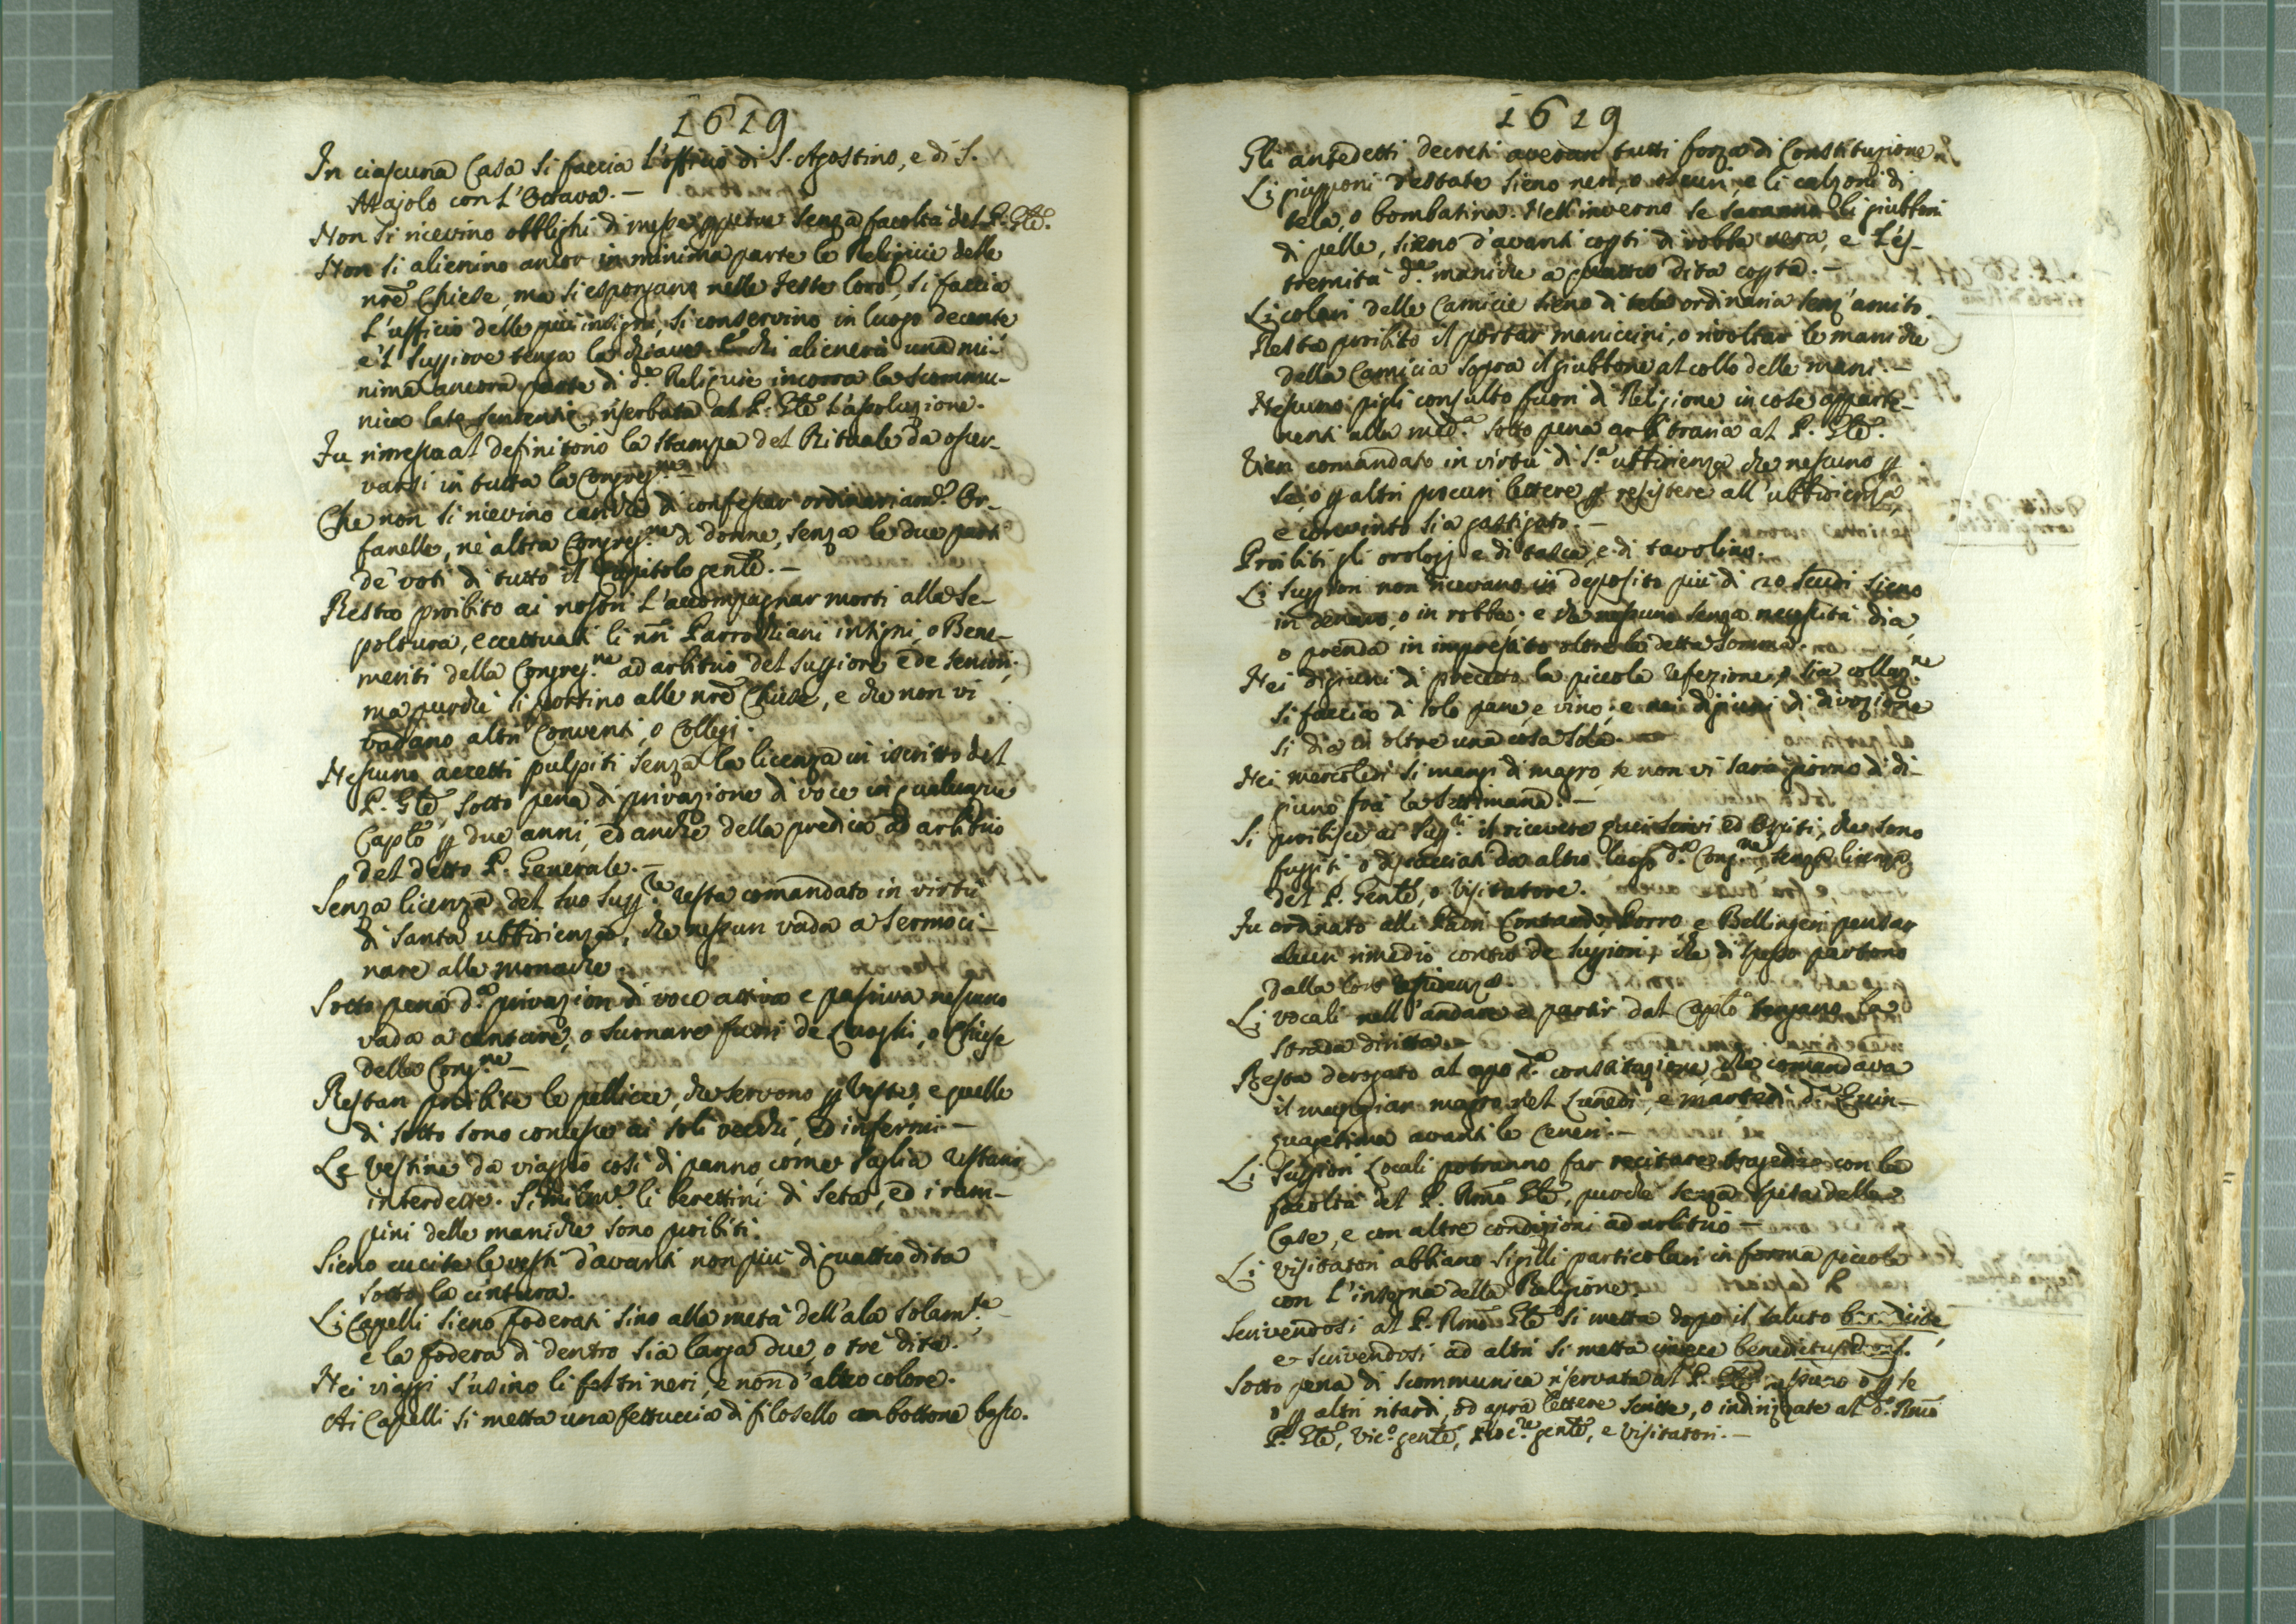 1619
In ciascuna Casa si faccia l'officio di S. Agostino, e di S.
Majolo con l'Octava. —
Non si ricevino obblighi di messe perpetue senza facoltà del P. Gñle.
Non si alienino ancor in minima parte le Reliquie delle
nrẽ Chiese, ma si espongano nelle Feste loro, si faccia
l'ufficio delle più insigni, si conservino in luogo decente
e 'l Suppiore tenga la chiave. E chi alienerà una mi-
nima ancora parte di d.e Reliquie incorra la scommu-
nica latę sententię, riserbata al P. Gñle l'assoluzione.
Fu rimessa al definitorio la stampa del Rituale da osser-
varsi in tutta la Congreg.ne —
Che non si ricevino carichi di confessar ordinariam.e Or-
fanelle, nè altra Congreg.ne di donne, senza le due parti
de' voti di tutto il Capitolo genlẽ. —
Resta proibito ai nostri l'accompagnar morti alla Se-
poltura, eccettuati li nrĩ Parrochiani insigni, o Bene-
meriti della Congreg.ne ad arbitrio del Suppiore e de seniori,
ma purchè si portino alle nrẽ Chiese, e che non vi
vadano altri Conventi, o Collegj.
Nessuno accetti pulpiti senza la licenza in iscritto del
P. Gñle, sotto pena di privazione di voce in qualunque
Caplõ ꝑ due anni, ed anche della predica ad arbitrio
del detto P. Generale. —
Senza licenza del suo Supp.re resta comandato in virtù
di Santa ubbidienza, che nessun vada a sermoci-
nare alle monache.
Sotto pena d.a privazion di voce attiva e passiva nessuno
vada a cantare, o suonare fuori de Luoghi, o Chiese
della Cong.ne —
Restan proibite le pellicce, che servono ꝑ veste, e quelle
di sotto sono concesse ai soli vecchi, ed infermi. —
Le vestine da viaggio così di panno, come saglia restano
interdette. Similm.e li berettini di seta, ed i ram-
pini delle maniche sono proibiti.
Sieno cucite le vesti d'avanti non più di quattro dita
sotto la cintura.
Li Capelli sieno foderati sino alla metà dell'ala solam.te
e la fodera di dentro sia larga due, o tre dita.
Nei viaggi s'usino li feltri neri, e non d'altro colore.
Ai Capelli si metta una fettuccia di filosello con bottone basso.
1619
Gli antedetti decreti averan tutti forza di Constituzione.
Li giupponi d'estate sieno neri, o oscuri, e li calzoni di
tela, o bombasina. Nell'inverno se saranno li giubboni
di pelle, sieno d'avanti copti di robba nera, e l'es-
tremità d.e maniche a quattro dita copta. —
Li colari delle Camicie sieno di tela ordinaria senz'amito.
Resta proibito il portar maniccini, o rivoltar le maniche
della Camicia sopra il giubbone al collo delle mani. —
Nessuno pigli consulto fuori di Religione in cose apparte-
nenti alla med.a sotto pena arbitraria al P. Gñle.
Vien comandato in virtù di S.a ubbidienza che nessuno ꝑ
se, o ꝑ altri procuri lettere ꝑ resistere all'ubbidienza,
e convinto sia gastigato. —
Proibiti gli orologj e di tasca, e di tavolino.
Li Suppiori non ricevano in deposito più di 20 scudi sieno
in denaro, o in robba; e che nessuno senza necessità dia,
o prenda in imprestito oltre la detta somma.
Nei digiuni di precetto la piccola refezione, o sia collaz.ne
si faccia di solo pane, e vino; e nei digiuni di divozione
si dia in oltre una cosa sola.
Nei mercoledì si mangi di magro, se non vi sarà giorno di di-
giuno fra la settimana. —
Si proibisce ai Supp.ri il ricevere quei servi ed Ospiti, che sono
fuggiti o discacciati da altro luogo d.a Cong.ne senza licenza
del P. Genlẽ, o Visitatore.
Fu ordinato alli Padri Contardi, Porro e Bellingeri pensar
alcun rimedio contro de Suppiori, che di spesso partono
dalla loro residenza.
Li vocali nell'andare e partir dal Caplõ tengano la
strada diritta. —
Resta derogato al capo d.a constituzione, che comandava
il mangiar magro nel Lunedì, e martedì d.a Quin-
quagesima avanti le Ceneri. —
Li Suppiori Locali potranno far recitare tragedie con la
facoltà del P. Rmõ Gñle, purchè senza spesa delle
Case, e con altre condizioni ad arbitrio —
Li Visitatori abbiano sigilli particolari in forma piccola
con l'insegna della Religione.
Scrivendosi al P. Rmõ Gñle si metta dopo il saluto benedicite,
e scrivendosi ad altri si metta invece benedictus Deus.
Sotto pena di scommunica riservata al P. Gñle nessuno o ꝑ se
o ꝑ altri ritardi, od apra lettere scritte, o indirizzate al d.o Rmõ
P. Gñle, Vic.o genlẽ, Proc.re genlẽ, e Visitatori. —